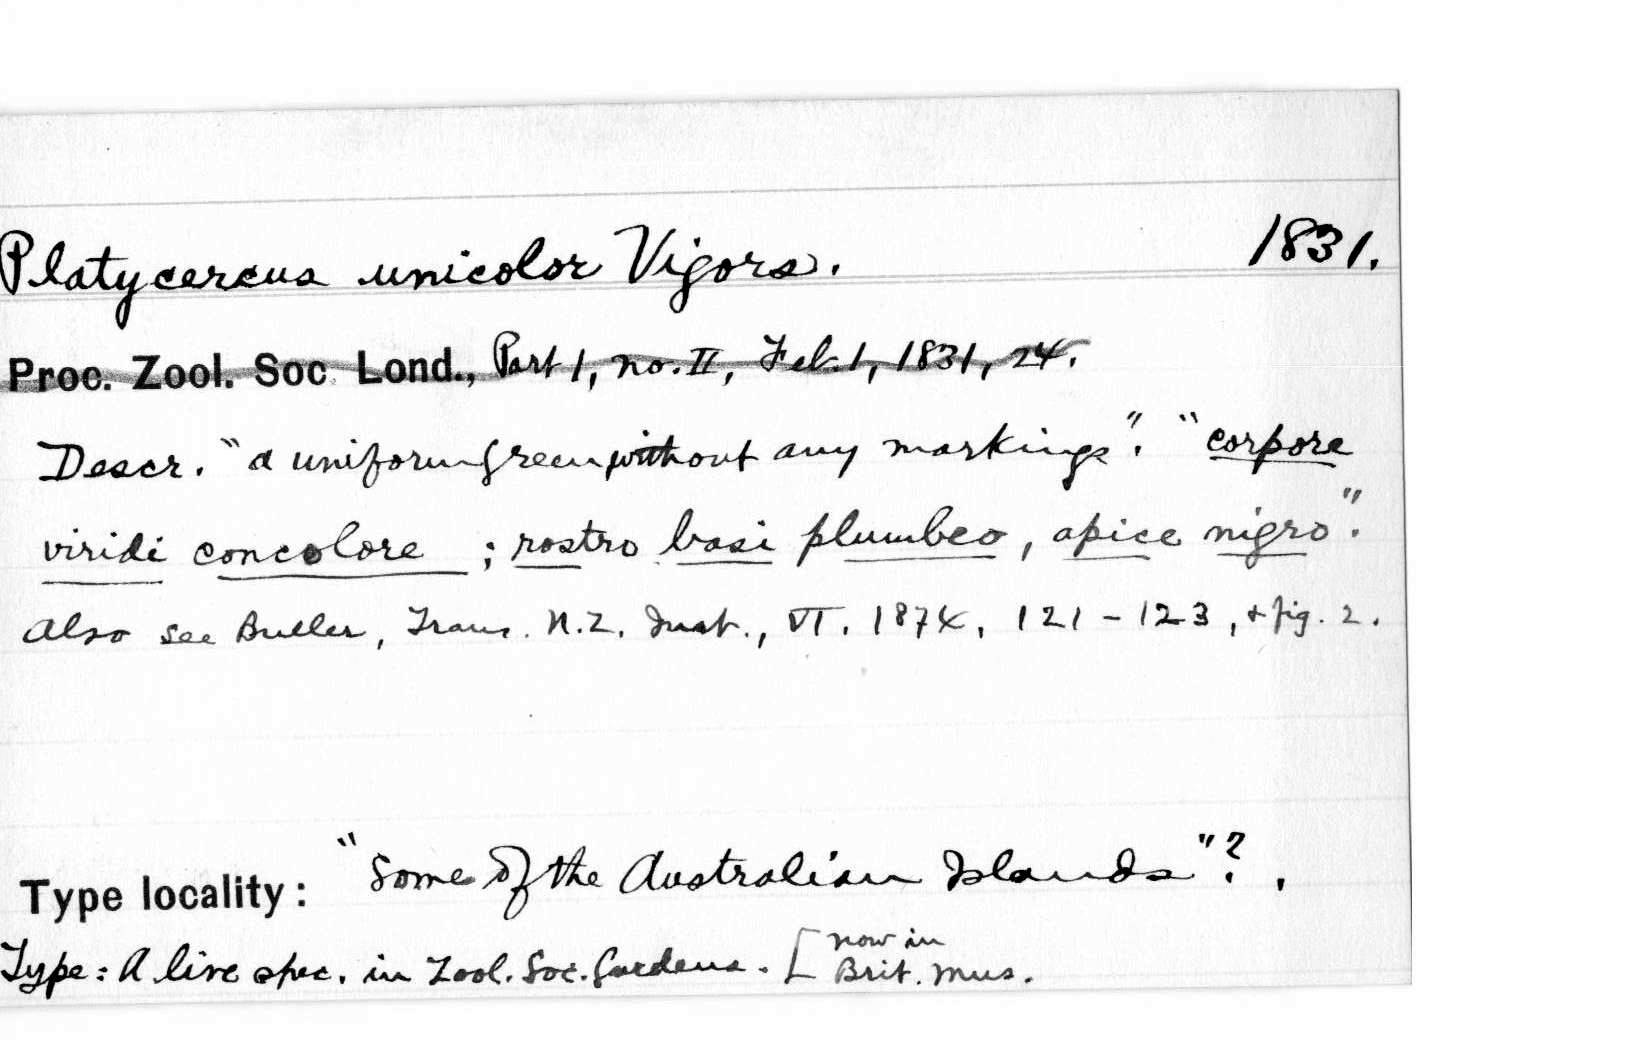 Platycercus unicolor Vigors. 1831.
Proc. Zool. Soc. Lond., Part 1, no. II, Feb. 1, 1831, 24.
Descr. "a uniform green without any markings". "corpore
viridi concolore ; rostro basi plumbeo, apice nigro".
Also see Buller, Trans. N.Z. Inst., VI. 1874, 121-123, & fig. 2.
Type locality: "Some of the Australian Islands"?.
Type: A live spec. in Zool. Soc. Gardens. [now in
Brit. Mus.